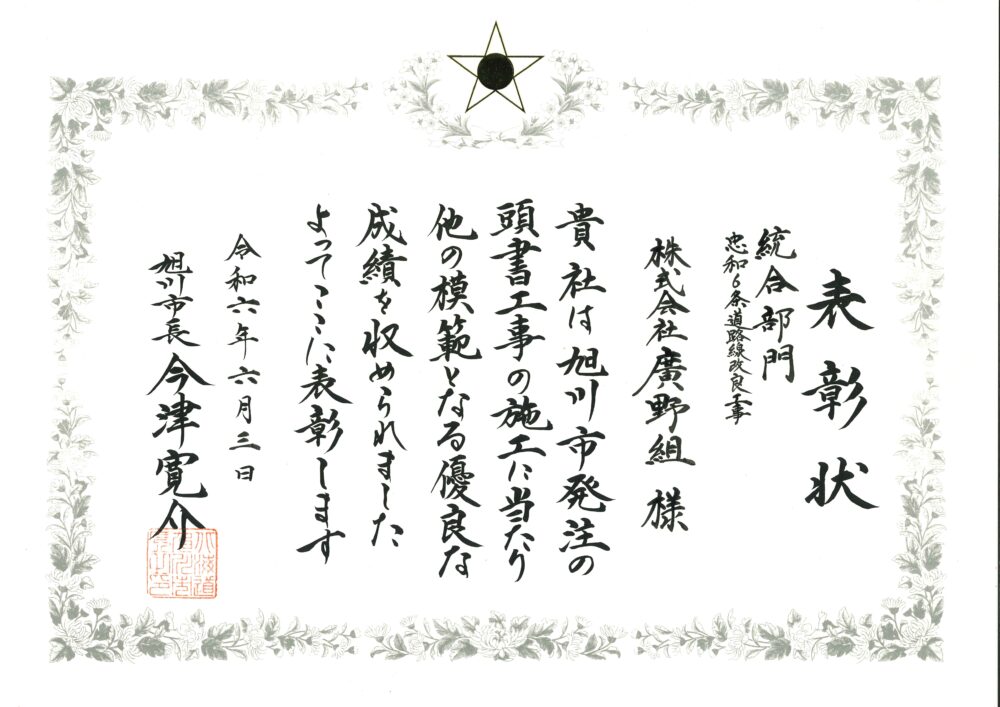 表彰状
統合部門
忠和6条道路線改良工事
株式会社廣野組 様
貴社は旭川市発注の
頭書工事の施工に当たり
他の模範となる優良な
成績を収められました
よってここに表彰します
令和六年六月三日
旭川市長 今津寛介